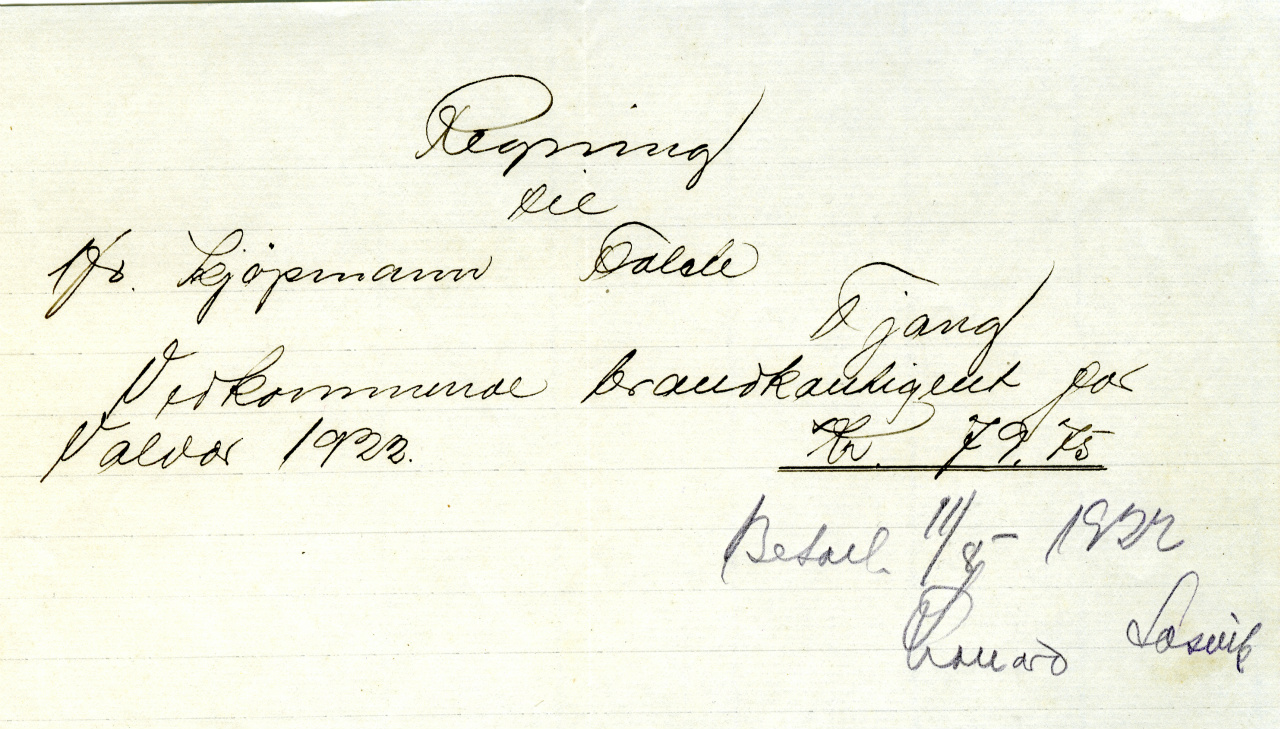 Regning
til
Hr. Kjøpmann Falch
Tjong
Vedkommende brandkontigent for
Valvær 1922.
Kr. 79.75
Betalt 11/8 - 1922